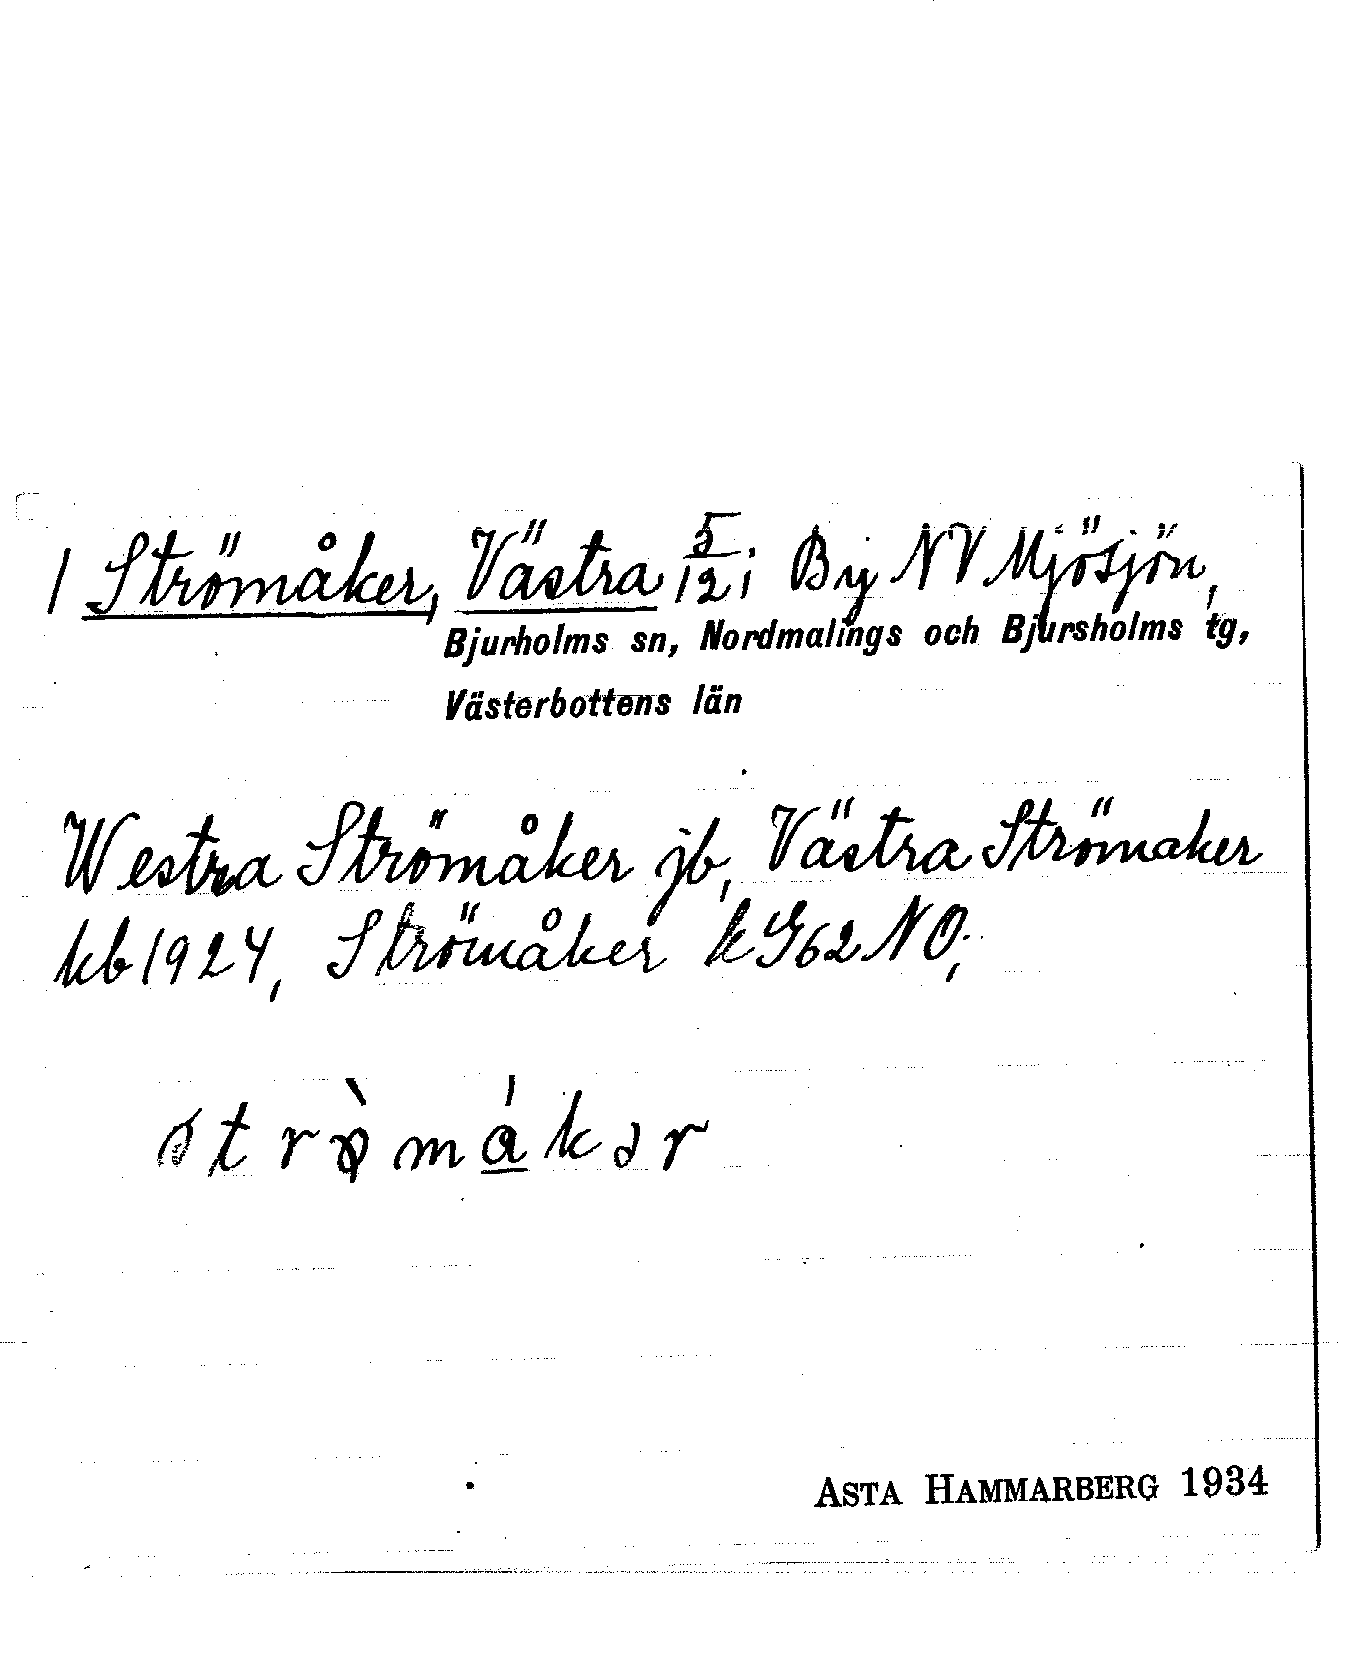 1 Strömåker, Västra 5/12 i By NV Mjösjön,
Bjurholms sn, Nordmalings och Bjursholms tg,
Västerbottens län
Westra Strömåker jb, Västra Strömaker
kb 1924, Strömåker k G62 NO;
strø̀mǻkər
ASTA HAMMARBERG 1934